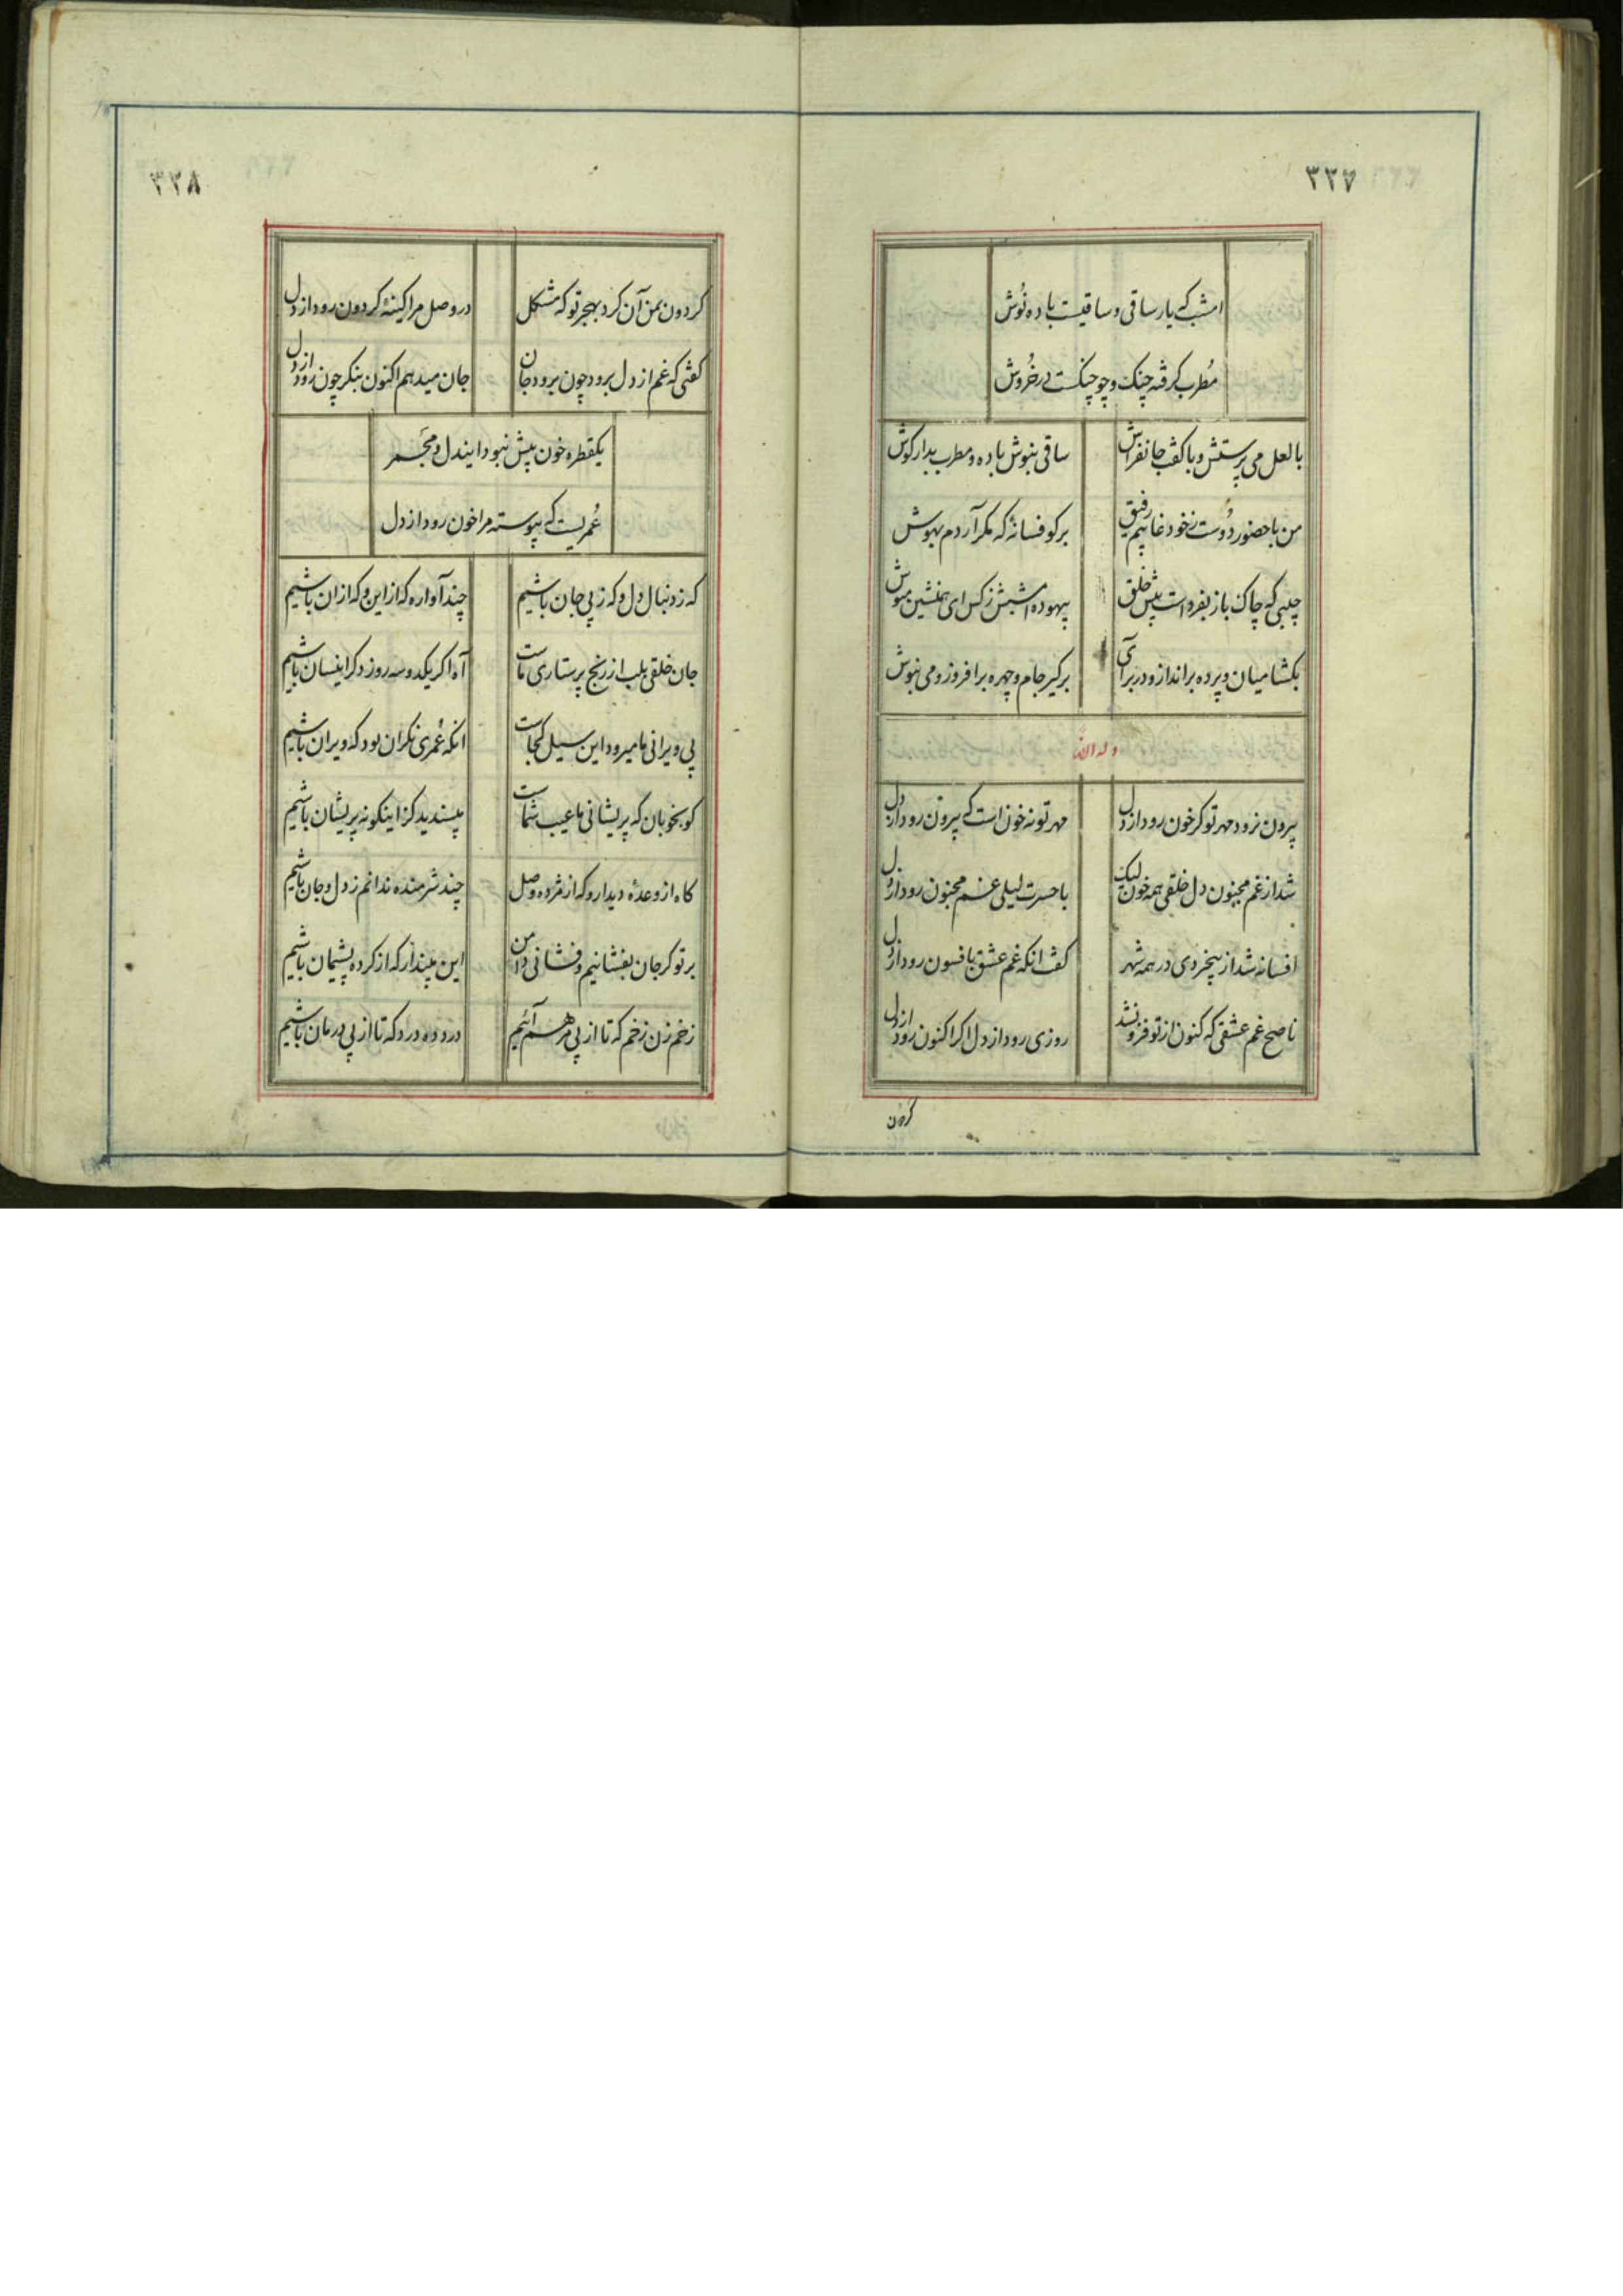 ۳۲۷
امشب که یار ساقی و ساقیست باده نوش
مُطرب گرفته چنگ و چو چنگست در خُروش
با لعل می پرستش و با کف جانفزاش
ساقی بنوش باده و مطرب بدار گوش
من با حضور دُوست ز خود غایبم رفیق
برگو فسانهٔ که مگر آردم بهوش
جیبی که چاک باز بفرداست پیش خلق
بیهوده امشبش ز کس ای همنشین مپوش
بگشا میان و پرده برانداز و در برآی
برگیر جام و چهره برافروز و می بنوش
وله ایضاً
بیرون نرود مهر تو گر خون رود از دل
مهر تو نه خون است که بیرون رود از دل
شد از غم مجنون دل خلقی همه خون لیک
با حسرت لیلی غم مجنون رود از دل
افسانه شد از بیخردی در همه شهر
گفت انکه غم عشق بافسون رود از دل
ناصح غم عشقی که کنون از تو فزونشد
روزی رود از دل اگر اکنون رود از دل
گردون
۳۲۸
گردون بمن آن کرد بهجر تو که مشکل
در وصل مرا کینهٔ گردون رود از دل
گفتی که غم از دل برود چون برود جان
جان میدهم اکنون بنگر چون رود از دل
یکقطره خون بیش نبود ایندل و مجمر
عُمریست که پیوسته مرا خون رود از دل
گه ز دنبال دل و گه ز پی جان باشیم
چند آواره گه از این و گه از ان باشیم
جان خلقی بلب از رنج پرستاری ماست
آه اگر یکدو سه روز دگر اینسان باشیم
پی ویرانی ما میرود این سیل کجاست
انکه عُمری نگران بود که ویران باشیم
گو بخوبان که پریشانی ما عیب شماست
مپسندید کز اینگونه پریشان باشیم
گاه از وعدهٔ دیدار و گه از مژده وصل
چند شرمنده ندانم ز دل و جان باشیم
بر تو گر جان بفشانیم و فشانی دامن
این مپندار که از کرده پشیمان باشیم
زخم زن زخم که تا از پی مرهم آئیم
درد ده درد که تا از پی درمان باشیم